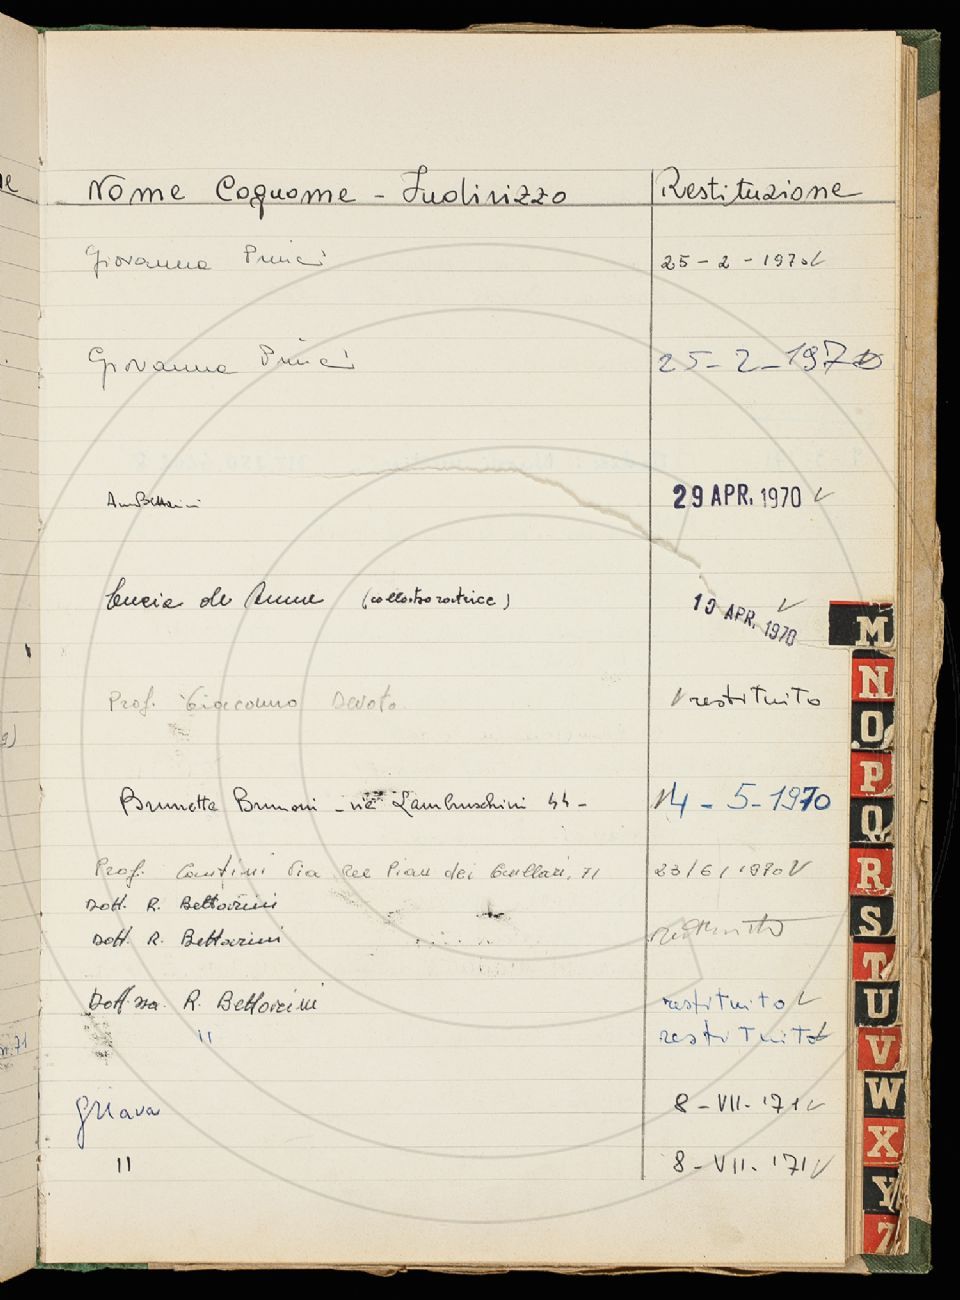 Nome Cognome - Indirizzo Restituzione
Giovanna 25 - 2 - 1970 ✓
Giovanna 25 - 2 - 1970
29 APR. 1970 ✓
Lucia (collaboratrice) 10 APR. 1970 ✓
Prof. Giacomo Devoto ✓ restituito
Brunetta - via Lambruschini 44 - ✓ 4 - 5 - 1970
Prof. Via Pian dei Giullari, 71 23/6/1970 ✓
Dott. R. Bettarini
Dott. R. Bettarini restituito
Dott.ssa R. Bettarini restituito ✓
" restituito ✓
8 - VII - '71 ✓
" 8 - VII - '71 ✓
M
N
O
P
Q
R
S
T
U
V
W
X
Y
Z